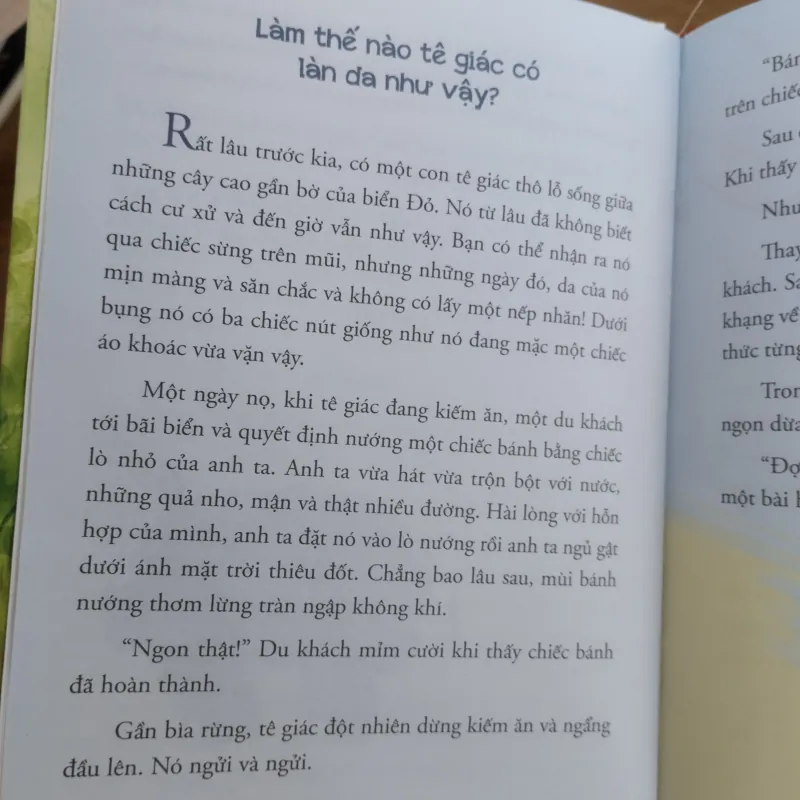 Làm thế nào tê giác có
làn da như vậy?
Rất lâu trước kia, có một con tê giác thô lỗ sống giữa
những cây cao gần bờ của biển Đỏ. Nó từ lâu đã không biết
cách cư xử và đến giờ vẫn như vậy. Bạn có thể nhận ra nó
qua chiếc sừng trên mũi, nhưng những ngày đó, da của nó
mịn màng và săn chắc và không có lấy một nếp nhăn! Dưới
bụng nó có ba chiếc nút giống như nó đang mặc một chiếc
áo khoác vừa vặn vậy.
Một ngày nọ, khi tê giác đang kiếm ăn, một du khách
tới bãi biển và quyết định nướng một chiếc bánh bằng chiếc
lò nhỏ của anh ta. Anh ta vừa hát vừa trộn bột với nước,
những quả nho, mận và thật nhiều đường. Hài lòng với hỗn
hợp của mình, anh ta đặt nó vào lò nướng rồi anh ta ngủ gật
dưới ánh mặt trời thiêu đốt. Chẳng bao lâu sau, mùi bánh
nướng thơm lừng tràn ngập không khí.
“Ngon thật!” Du khách mỉm cười khi thấy chiếc bánh
đã hoàn thành.
Gần bìa rừng, tê giác đột nhiên dừng kiếm ăn và ngẩng
đầu lên. Nó ngửi và ngửi.
trên
Sau
Khi thấy
khách.
khạng về
thức từng
ngọn dừa
một bài